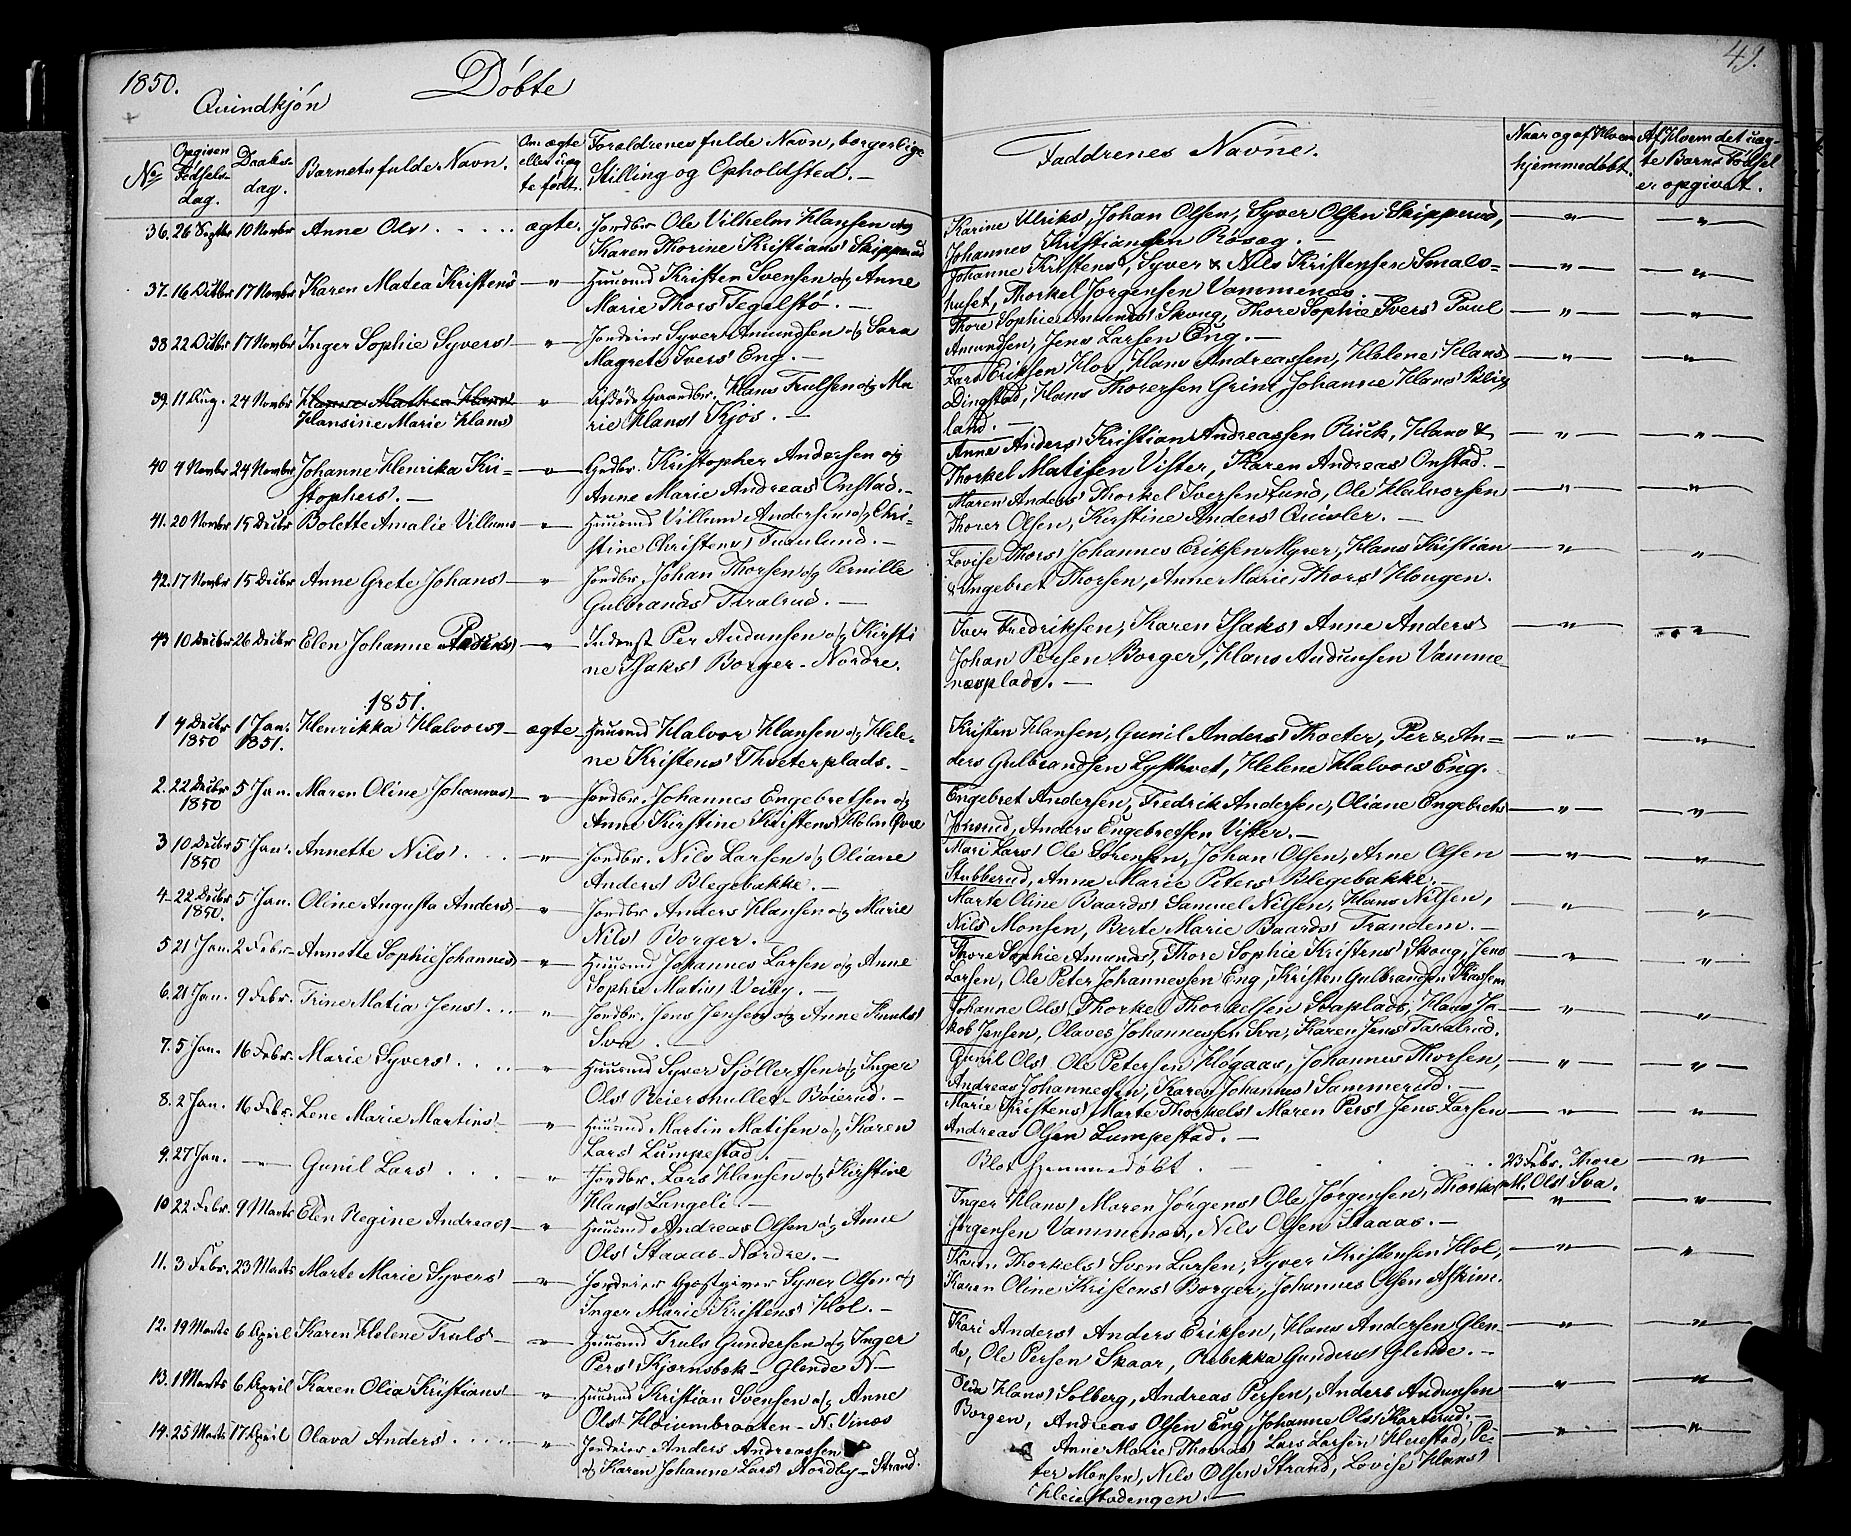 1850.
Döbte
49.
Quindkjön
No
Opgiven Fødselsdag.
Daabsdag.
Barnets fulde Navn.
Om ægte eller uægte født.
Forældrenes fulde Navn, borgerlige Stilling og Opholdsted. —
Faddrenes Navne.
Naar og af Hvem hjemmedøbt.
Af Hvem det uægte Barns Fødsel er opgivet.
36. 26 Septbr 10 Novbr Anne Ols' ..... ægte. Jordbr Ole Vilhelm Hansen og
Karen Thorine Kristians' Skipperud
Karine Ulriks', Johan Olsen, Syver Olsen Skipperud,
Johannes Kristiansen Röseg. —
37. 16 Octbr 17 Novbr Karen Matea Kristens' — " — Huusmd Kristen Svensen og Anne
Marie Thors' Tegelstø. —
Johanne Kristens', Syver & Nils Kristensen Smals-
huset, Thorkel Jørgensen Vammenæs. —
38 22 Octbr 17 Novbr Inger Sophie Syvers' — " — Jordeier Syver Amundsen og Sara
Magrete Ivers' Eng. —
Thore Sophie Amunds' Skoug, Thore Sophie Ivers' Paul
Amundsen, Jens Larsen Eng. —
39. 11 Aug. 24 Novbr Hansine Marie Hans' " Hans Trulsen og Ma
rie Hans' Kjos. —
Lars Eriksen Hol, Hans Andreassen, Helene Hans'
Dingstad, Hans Thorersen Grini, Johanne Hans' Blig
land. —
40 4 Novbr 24 Novbr Johanne Henrika Kri-
stophers'. —
— " — Grdbr. Kristopher Andersen og
Anne Marie Andreas' Onstad. —
Anne Anders' Kristian Andreassen Ruck, Hans &
Thorkel Matisen Vister, Karen Andreas' Onstad. —
41. 20 Novbr 15 Decbr Bolette Amalie Villums' — " — Huusmd Villum Andersen og Chri-
stine Christens' Furulund. —
Maren Anders' Thorkel Iversen Lund, Ole Halvorsen
Thorer Olsen, Kirstine Anders' Quisler. —
42. 17 Novbr 15 Decbr Anne Grete Johans' — " — Jordbr. Johan Thorsen og Pernille
Gulbrands' Taralrud. —
Lovise Thors' Johannes Eriksen Myrer, Hans Kristian
& Ingebret Thorsen, Anne Marie Thors' Hougen.
43 10 Decbr 26 Decbr Elen Johanne Peders' — " — Inderst Per Audunsen og Kirsti
ne Isaks' Borger-Nordre.
Iver Fredriksen, Karen Isaks' Anne Anders'
Johan Persen Borger, Hans Audunsen Vamme-
næsplads. —
1851.
1 4 Decbr 1850 1 Jan. 1851. Henrikka Halvors' — ægte — Huusmd Halvor Hansen og Hele-
ne Kristens' Thveterplads. —
Kristen Hansen, Gunil Anders' Thveter, Per & An-
ders Gulbrandsen Lysthvet, Helene Halvors' Eng.
2. 22 Decbr 1850 5 Jan. Maren Oline Johannes' — " — Jordbr. Johannes Engebretsen og
Anne Kirstine Kristens' Holm Övre
Engebret Andersen, Fredrik Andersen, Oliane Engebrets'
Anders Engebretsen Vister. —
3 10 Decbr 1850 5 Jan. Annette Nils' .... — " — Jordbr. Nils Larsen og Oliane
Anders' Blegebakke. —
Mari Lars' Ole Sörensen, Johan Olsen, Arne Olsen
Stubberud, Anne Marie Peters' Blegebakke. —
4. 22 Decbr 1850. 5 Jan. Oline Augusta Anders' — " — Jordbr Anders Hansen og Marie
Nils' Borger. —
Marte Oline Baards' Samuel Nilsen, Hans Nilsen,
Nils Monsen, Berte Marie Baards' Trandem. —
5 21 Jan. 2 Febr. Annette Sophie Johannes' — " — Huusmd Johannes Larsen og Anne
Sophie Matis' Veiby. —
Thore Sophie Amunds', Thore Sophie Kristens' Skoug, Jens
Larsen, Ole Peter Johannessen Eng, Kristen Gulbrandsen
6. 21 Jan. 9 Febr. Trine Matia Jens' ... " — Jordbr. Jens Jensen og Anne Knuts'
Sva. —
Johanne Ols' Thorkel Thorkelsen Svaplads, Hans Ja-
kob Jensen, Olaves Johannessen Sva, Karen Jens' Taralrud.
7. 5 Jan. 16 Febr. Marie Syvers' .... — " — Huusmd Syver Sjöllersen og Inger
Ols' Reiershullet-Böierud. —
Gunil Ols' Ole Petersen Högaas, Johannes Thorsen,
Andreas Johannessen, Karen Johannes' Sammerud. —
8. 2 Jan. 16 Febr. Lene Marie Martins' — " — Huusmd Martin Matisen og Karen
Lars' Lumpestad. —
Marie Kristens' Marte Thorkels' Maren Pers' Jens Larsen
Andreas Olsen Lumpestad. —
9. 27 Jan. — Gunil Lars' ... — " — Jordbr. Lars Hansen og Kirstine
Hans' Langeli. —
Blot hjemmedøbt. 23 Febr. Thore M. Ols' Sva.
10 22 Febr. 9 Marts Elen Regine Andreas' — " — Huusmd Andreas Olsen og Anne
Ols' Staaas-Nordre. —
Inger Hans' Maren Jørgens' Ole Jørgensen, Thorkel
Jørgensen Vammenæs, Nils Olsen Staaas. —
11. 3 Febr. 23 Marts Marte Marie Syvers' — " — Jordeier Gjæstgiver Syver Olsen og
Inger Marie Kristens' Hol. —
Karen Thorkels' Sven Larsen, Syver Kristensen Hol,
Karen Oline Kristens' Borger, Johannes Olsen Askim.
12. 19 Marts 6 April Karen Helene Truls' — " — Huusmd Truls Gundersen og Inger
Pers' Kjærnsbek-Glende N —
Kari Anders' Anders Eriksen, Hans Andersen Glen-
de, Ole Persen Skaar, Rebekka Gunders' Glende. —
13. 1 Marts 6 April Karen Olia Kristians' — " — Huusmd Kristian Svensen og Anne
Ols' Höiumbraaten-N. Vinæs
Olea Hans' Solberg, Andreas Persen, Anders Audunsen
Borgen, Andreas Olsen Eng, Johanne Ols' Karterud. —
14. 25 Marts 17 April Olava Anders' .... — " — Jordeier Anders Andreassen
og Karen Johanne Lars' Nordby-Strand.
Anne Marie Thoras' Lars Larsen Heiestad, Pe-
ter Monsen, Nils Olsen Strand, Lovise Hans'
Heiestadengen. —